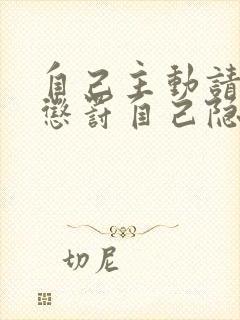 自己主動請
懲罰自己隐
切尼